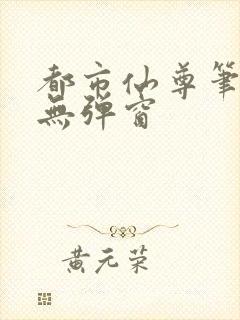 都市仙尊筆
無彈窗
黃元荣